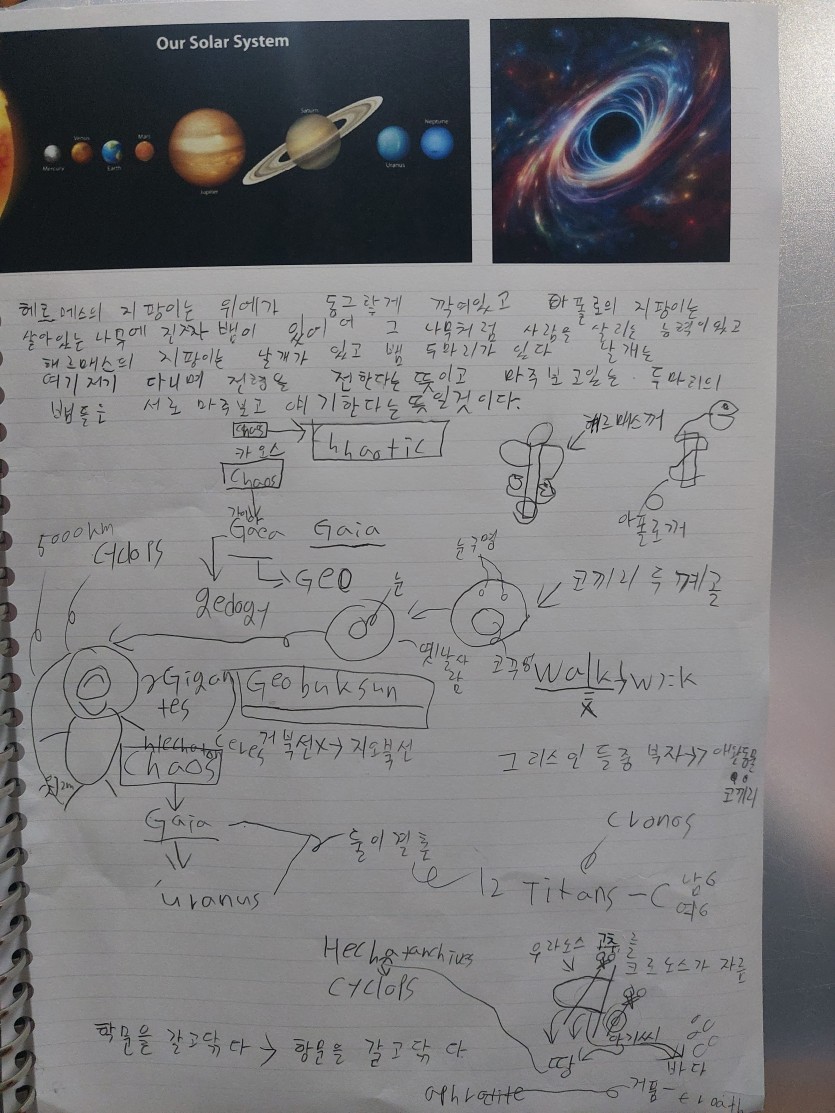 Our Solar System
Mercury
Venus
Earth
Mars
Jupiter
Saturn
Uranus
Neptune
헤르메스의 지팡이는 위에가 동그랗게 깍여있고 아폴로의 지팡이는
살아있는 나무에 진짜 뱀이 있어 그 나무처럼 사람을 살리는 능력이있고
헤르메스의 지팡이는 날개가 있고 뱀 두마리가 있다 날개는
여기저기 다니며 전령을 전한다는 뜻이고 마주보고있는 두마리의
뱀들은 서로 마주보고 얘기한다는 뜻일것이다.
chaos
chaotic
카오스
Chaos
헤르메스꺼
아폴로꺼
가이아
Gaea Gaia
Geo
5000km
Cyclops
눈구멍
코끼리 두개골
눈
옛날사람
코구멍
Walk → w
Gigantes
Geobuksun
거북선X → 지오북선
Chaos
그리스인 들중 부자 → 애완동물
코끼리
Gaia
uranus
둘이결혼
12 Titans
남6
여6
Cronos
Hechatanchius
Cyclops
우라노스 고추를
크르노스가 자름
땅
바다
거품
학문을 갈고닦다 → 항문을 갈고닦다